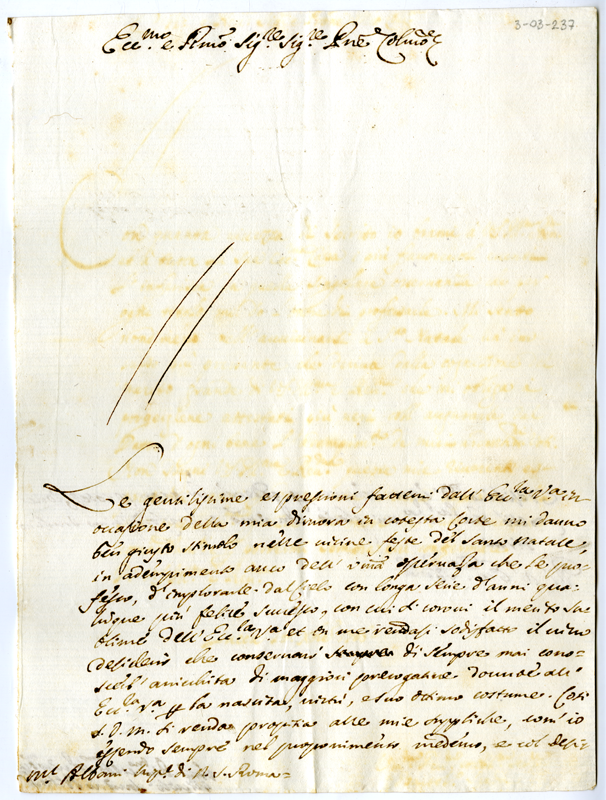 3-03-237
Ecc.mo e Rmo Sig.re Sig.re Pne Colmo
Le gentilissime espressioni fattemi dall' Ecc.la V.a in
occasione della mia dimora in cotesta Corte mi danno
ben giusto stimolo nelle vicine feste del Santo Natale,
in adempimento anco dell' osservaza che le pro-
fesso, d' implorarle dal Cielo con longa serie d' anni qua-
lunque più felice successo, con cui si coroni il merito su
blime dell' Ecc.la V.a et in me rendasi sodisfatto il vivo
desiderio che conservarò di sempre mai cono-
scerla di maggiori prerogative all'
Ecc.la V.a la nascita, virtù, e suo ottimo costume. Così
S. D. M. si renda propitia alle mie suppliche, com' io
essendo sempre nel proponimento medemo, e col desi-
Albani di N. S. Roma=